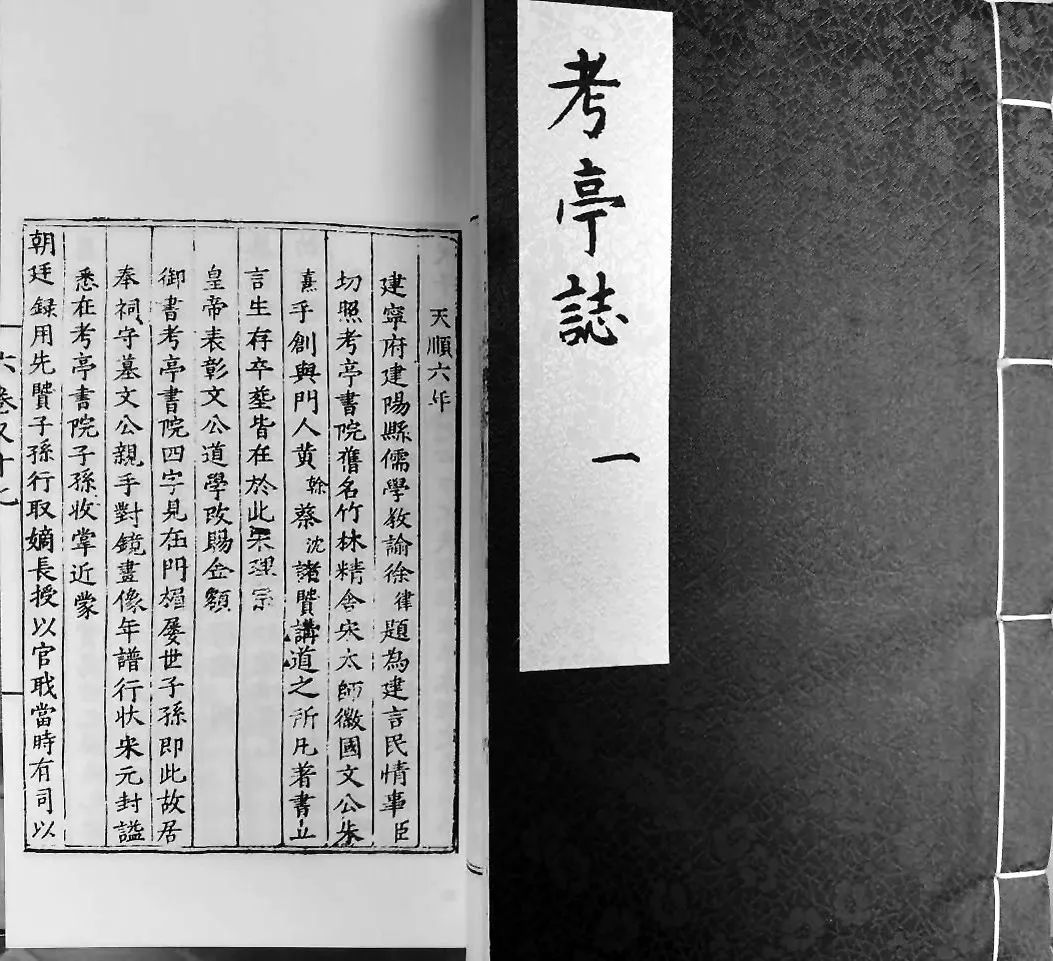 考亭誌
一
天順六年
建寧府建陽縣儒學教諭徐律題為建言民情事臣
切照考亭書院舊名竹林精舍宋太師徽國文公朱
熹手創與門人黄榦蔡沈諸賢講道之所凡著書立
言生存卒塟皆在於此宋理宗
皇帝表彰文公道學改賜金額
御書考亭書院四字見在門楣屡世子孫即此故居
奉祠守墓文公親手對鏡畫像年譜行狀宋元封謚
悉在考亭書院子孫收掌近蒙
朝廷録用先賢子孫行取嫡長授以官职當時有司以